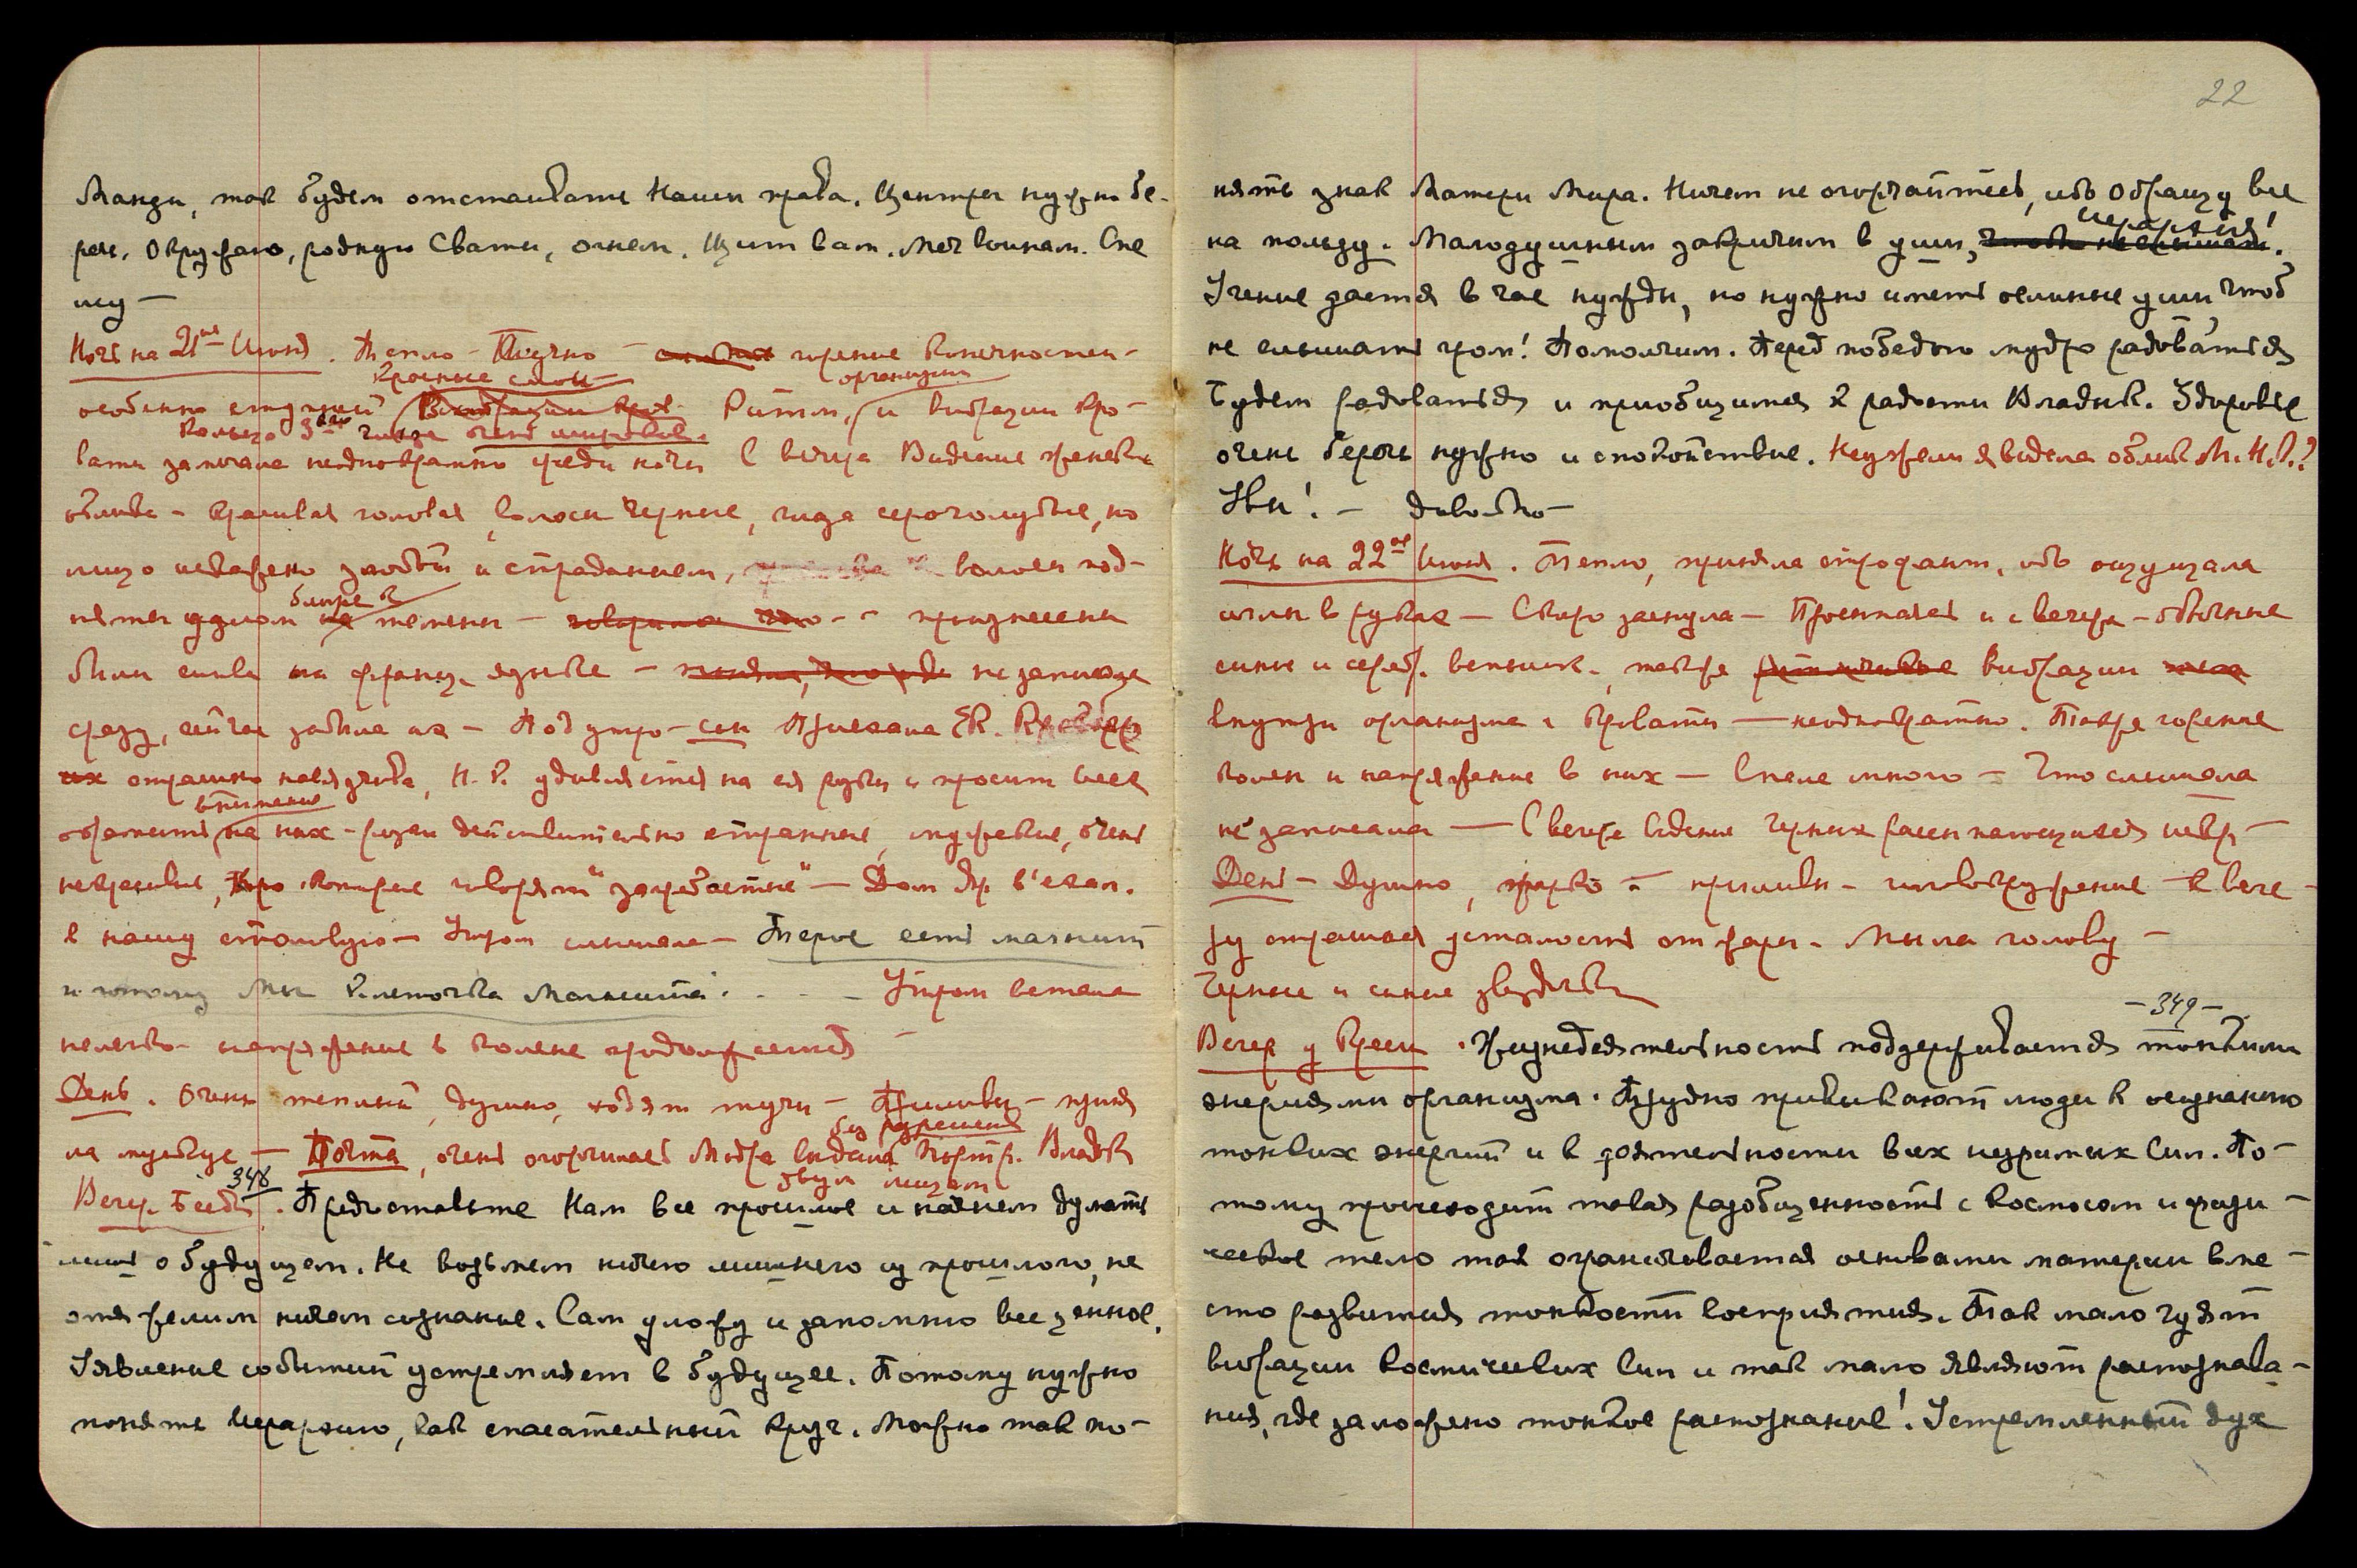 Манди, так будем отстаивать Наши права. Центры нужно бе-
речь. Окружаю, родную Свати, огнем. Щит вам. Меч воинам. Спе
шу —
Ночь на 21ое Июня. Тепло – Тучно – горение конечностей –
красные сны организма
особенно ступней Ритм, и вибрации кро-
кольцо 3его глаза очень широкое.
вати замечала неоднократно среди ночи С вечера Видение женского
облика – красивая голова, волосы черные, глаза сероголубые, но
лицо искажено злобой и страданием, волосы под-
ближе к
няты узлом темени – произнесены
были слова на франц. языке – не записала
сразу, сейчас забыла их – Под утро – сон Приехала Ек.
страшно навязчива, Н.К. удивляется на ея руки и просит всех
внимание
обратить на них – руки действительно странные, мужские, очень
некрасивые, которые говорят "загребастые" – Дом др. въехал.
в нашу столовую – Утром слышала – Терос есть магнит
и потому Мы Клеточка Магнита. . . . – Утром встала
нелегко – напряжение в колене продолжается –
День. Очень теплый, душно, ходят тучи – Приливы – приня
без разрешения
ла мускус – Почта, очень огорчилась Модра выдала портр. Владык
двум лицам
348
Вечер. Беседа. Предоставьте Нам все прошлое и начнем думать
лишь о будущем. Не возьмем ничего лишнего из прошлого, не
отяжелим ничем сознание. Сам уложу и запомню все ценное.
Явление событий устремляет в будущее. Потому нужно
понять Иерархию, как спасательный круг. Можно так по-
22
нять знак Матери Мира. Ничем не огорчайтесь, ибо обращу все
Иерархия!
на пользу. Малодушным закричим в уши,
Учение дается в час нужды, но нужно иметь ослиные уши чтоб
не слышать гром! Помолчим. Перед победою мудро радоваться
Будем радоваться и приобщимся к радости Владык. Здоровье
очень беречь нужно и спокойствие. Неужели я видела облик М.И.Л.?
Увы! – довольно –
Ночь на 22ое Июня. Тепло, приняла строфант, ибо ощущала
иглы в руках – Скоро заснула – Проснулась и с вечера – обычные
синие и сереб. вспышк., также вибрации
внутри организма и кровати – неоднократно. Также горение
колен и напряжение в них – Спала много – Что слышала
не записала — С вечера видение черных рассыпающихся искр –
День – Душно, жарко – приливы – головокружение – к вече –
ру страшная усталость от жары. Мыла голову –
Черные и синие звездочки
– 349 –
Вечер у Крыш. Жизнедеятельность поддерживается тонкими
энергиями организма. Трудно привыкают люди к осознанию
тонких энергий и к деятельности всех незримых Сил. По-
тому происходит такая разобщенность с Космосом и физи –
ческое тело так ограничивается основами материи вме –
сто развития тонкости восприятия. Так мало чуют
вибрации космических Сил и так мало являют распознава –
ния, где заложено тонкое распознание! Устремленный дух